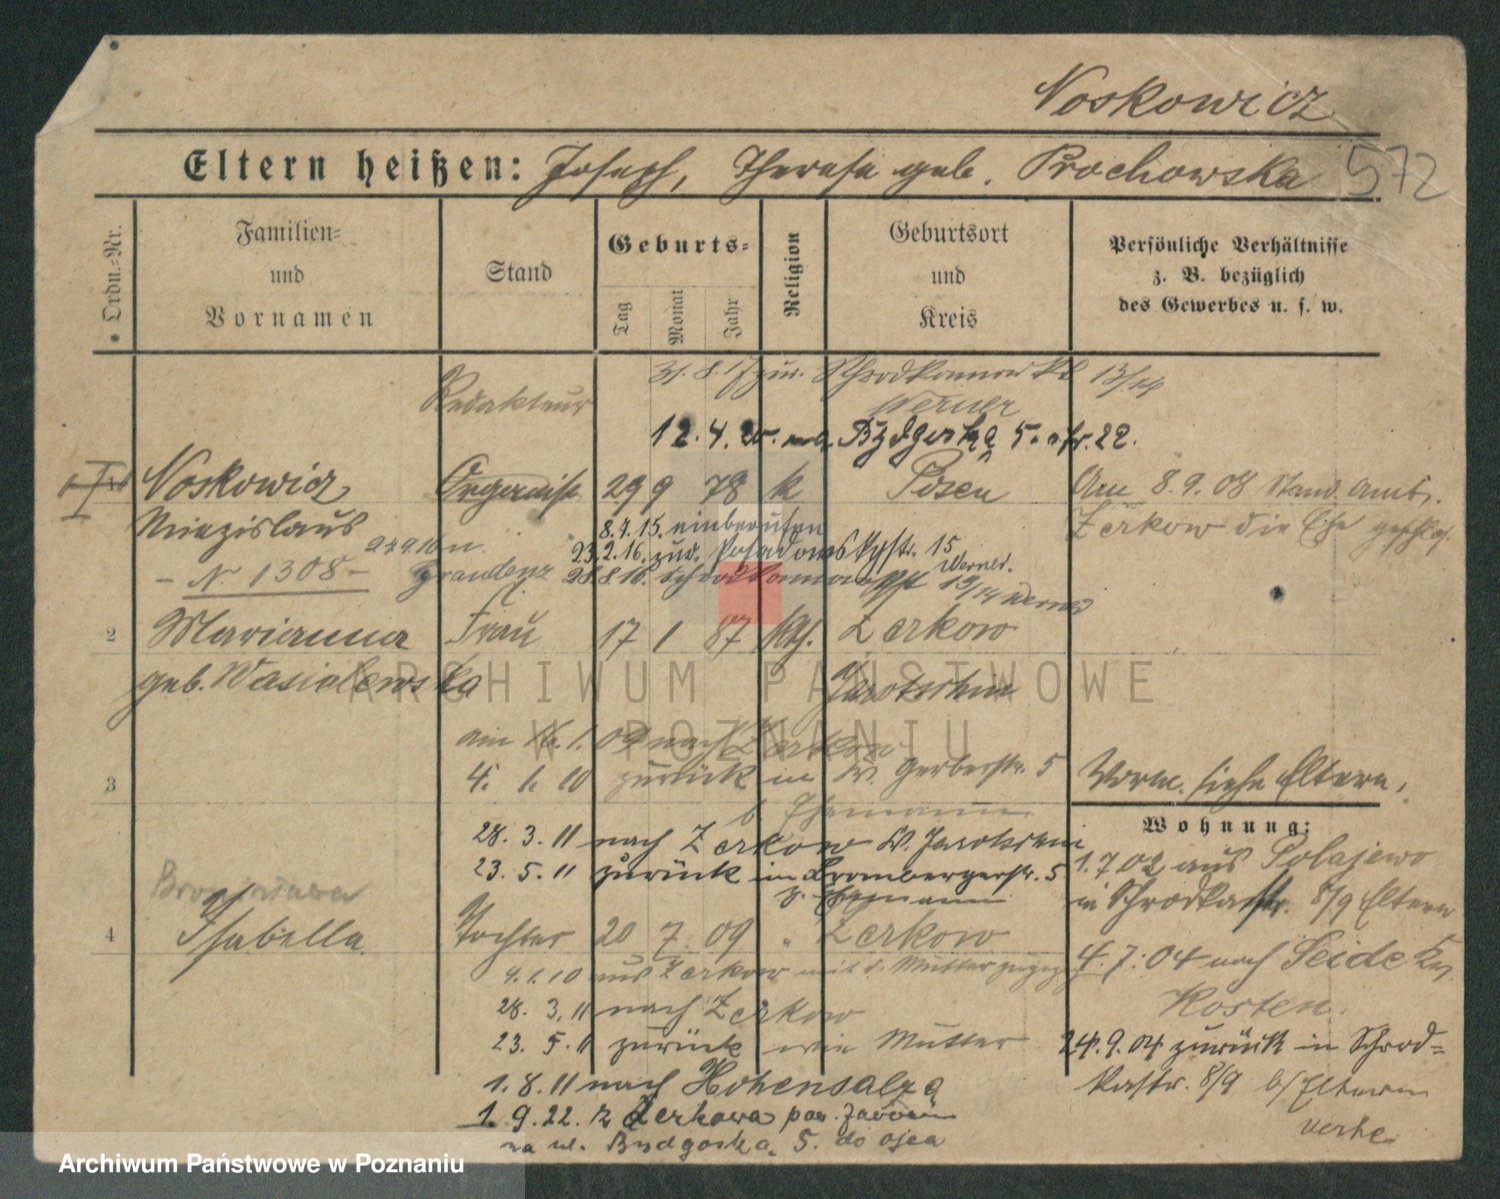 Noskowicz
Eltern heißen: Joseph, Therese geb. Prochowska 572
Ordn.-Nr.
Familien- und Vornamen
Stand
Geburts-
Tag
Monat
Jahr
Religion
Geburtsort und Kreis
Persönliche Verhältnisse
z. B. bezüglich
des Gewerbes u. s. w.
31. 8. 17 13/14
Redakteur
Werner
12. 4. 20. na Bydgoska 5. 22.
Noskowicz Organist 29 9 78 k Posen Am 8. 9. 08 Stand. Amt
Miezislaus 8.7.15. einberufen Zerkow die Ehe geschlos.
23.2.16. zur. Posadowskystr. 15
Werner.
– N 1308 – Graudenz 28.8.16. 13/14 Werner
2 Marianna Frau 17 1 87 kth. Zerkow
geb. Wasielewska Jarotschin
am 16.1.09 nach Zerkow
3 4. 1. 10 zurück in W. Gerberstr. 5 Vorm. siehe Eltern.
b Ehemann
Wohnung:
28. 3. 11 nach Zerkow Kr. Jarotschin
23. 5. 11 zurück in Brombergerstr. 5 1.7 02 aus Polajewo
z. Ehemann in Schrodkastr. 8/9 Eltern
4 Isabella Tochter 20 7. 09 " Zerkow
4.1.10 aus Zerkow mit d. Mutter 4.7.04 nach Seide Kr.
28. 3. 11 nach Zerkow Kosten.
23. 5. 11 zurück wie Mutter 24.9.04 zurück in Schrod-
kastr. 8/9 b/Eltern
1. 8. 11 nach Hohensalza
1. 9. 22. z Zerkowa pow. Jarocin
na ul. Bydgoska 5. do ojca
ARCHIWUM PAŃSTWOWE
W POZNANIU
Archiwum Państwowe w Poznaniu